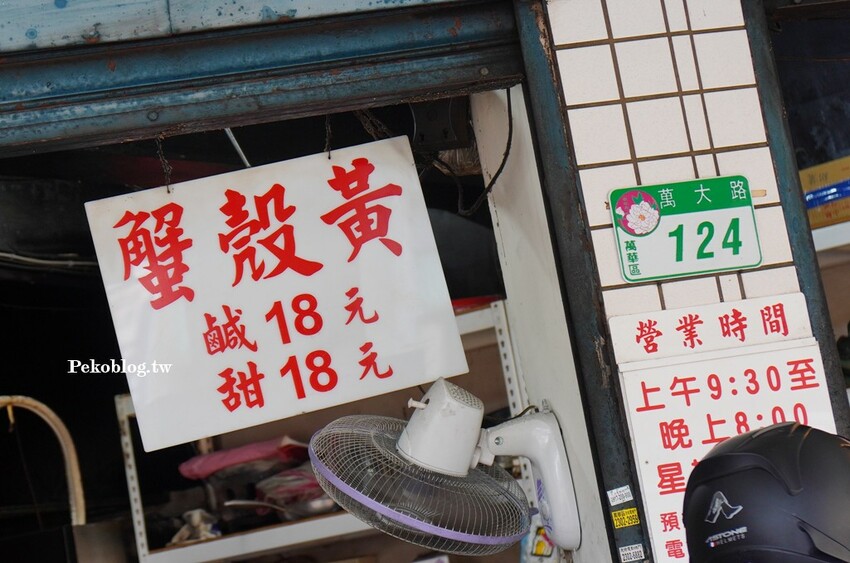 蟹殼黃
鹹18元
甜18元
Pekoblog.tw
萬大路
萬華區
124
營業時間
上午9:30至
晚上8:00
星
預
電
ASTONE
HELMETS